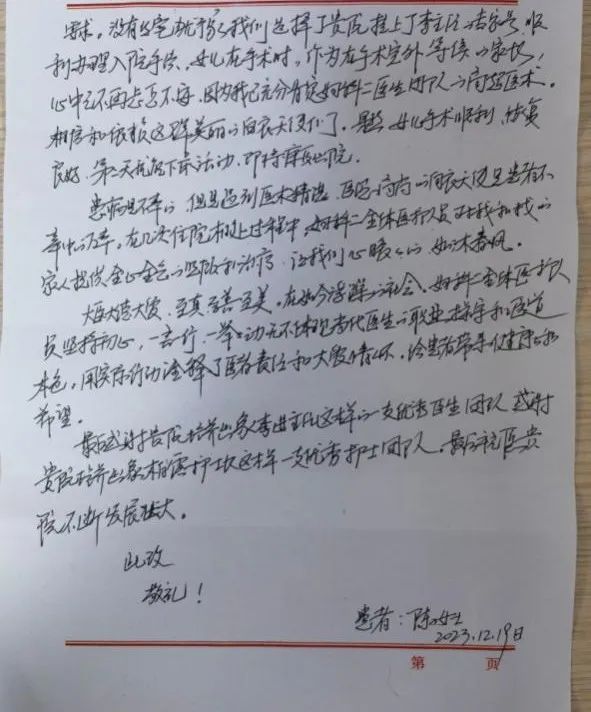 要求。没有丝毫犹豫我们选择了贵院挂上了李主任的专家号,顺
利办理入院手续。女儿在手术时,作为在手术室外等候的家长,
心中不再忐忑不安,因为我已充分肯定妇科二医生团队的高超医术。
相信和依赖这群美丽的白衣天使们了。果然女儿手术顺利,恢复
良好。第二天就能下床活动,即将康复出院。
患病是不幸的,但是遇到医术精湛、医德高尚的白衣天使是患者不
幸中的万幸。在几次住院和此过程中,妇科二全体医护人员对我和我的
家人提供全心全意的照顾和治疗,让我们心暖暖的,如沐春风。
大医大德大爱,至真至善至美。在如今浮躁的社会,妇科二全体医护人
员坚持初心,一言一行,一举一动无不体现当代医生的职业操守和医道
本色,用实际行动诠释了医者责任和大爱情怀,给患者带来健康和
希望。
最后感谢贵院培养出象李进主任这样的一支优秀医生团队,感谢
贵院培养出象相露护士长这样一支优秀护士团队。最后祝愿贵
院不断发展壮大。
此致
敬礼!
患者:陈女士
2023.12.19日
第 页